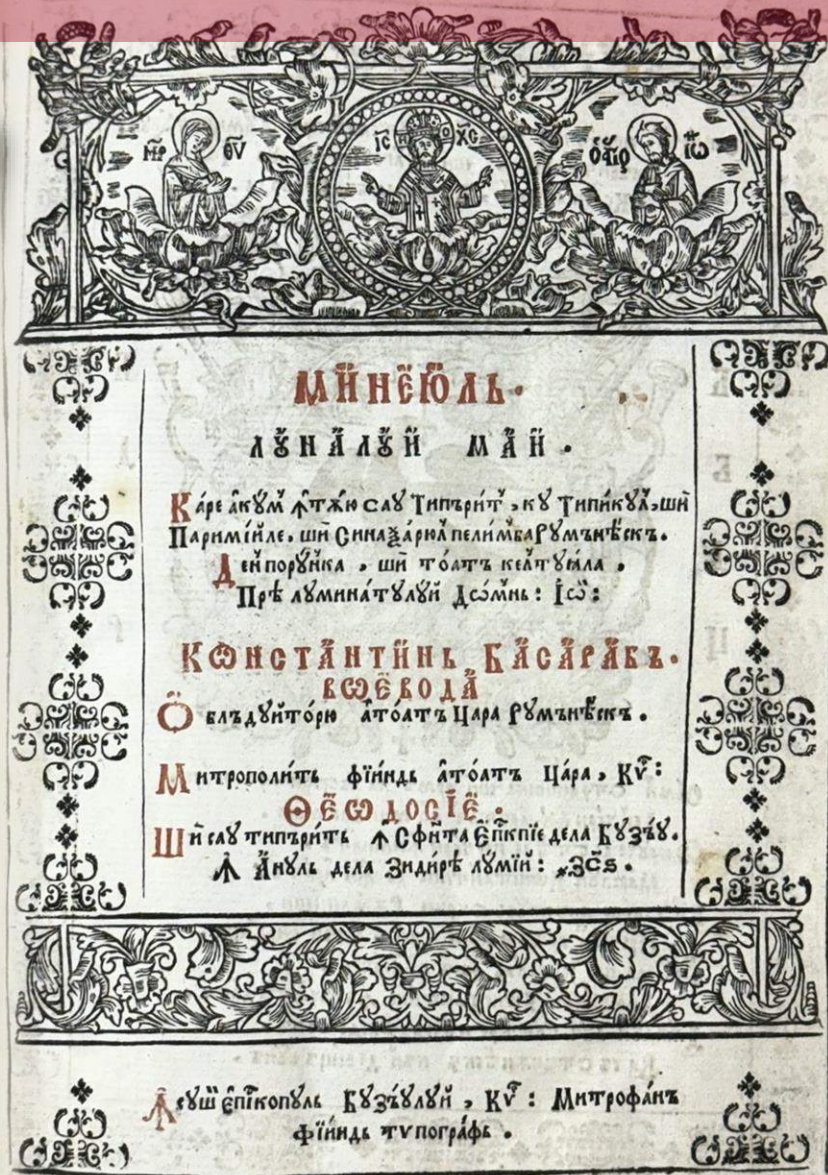 МР ѲУ ІС ХС ѺАГІО ІѠ
МИНЕЮЛЬ.
ЛꙊНАЛꙊЙ МАЙ.
Каре акꙋм ꙟтѫю сау Типърит, кꙋ Типикꙋл, ши
Паримїиле, ши Синаѯарюл пелимба Рꙋмънѣскъ.
Дей порꙋнка, ши тоатъ келтꙋꙗла.
Прѣ лꙋминатꙋлꙋй Дѡмнь: Іѡ:
КѠНСТАНТИНЬ БАСАРАБЪ.
ВѠЕВОДА
Ѻблъдꙋиторю атоатъ Цара Рꙋмънѣскъ.
Митрополить фїиндь атоатъ Цара, Кѵ҃:
ѲЕѠДОСІЕ.
Ши сау типърить ꙟ Сфинта Епⷭкпїе дела Бꙋзъꙋ.
Ꙟ Анꙋль дела Зидирѣ лꙋмїй: ҂ЗСЅ.
Ꙟсꙋш Епⷭкопꙋль Бꙋзъꙋлꙋй, Кѵ҃: Митрофань
фїиндь тѵпографь.